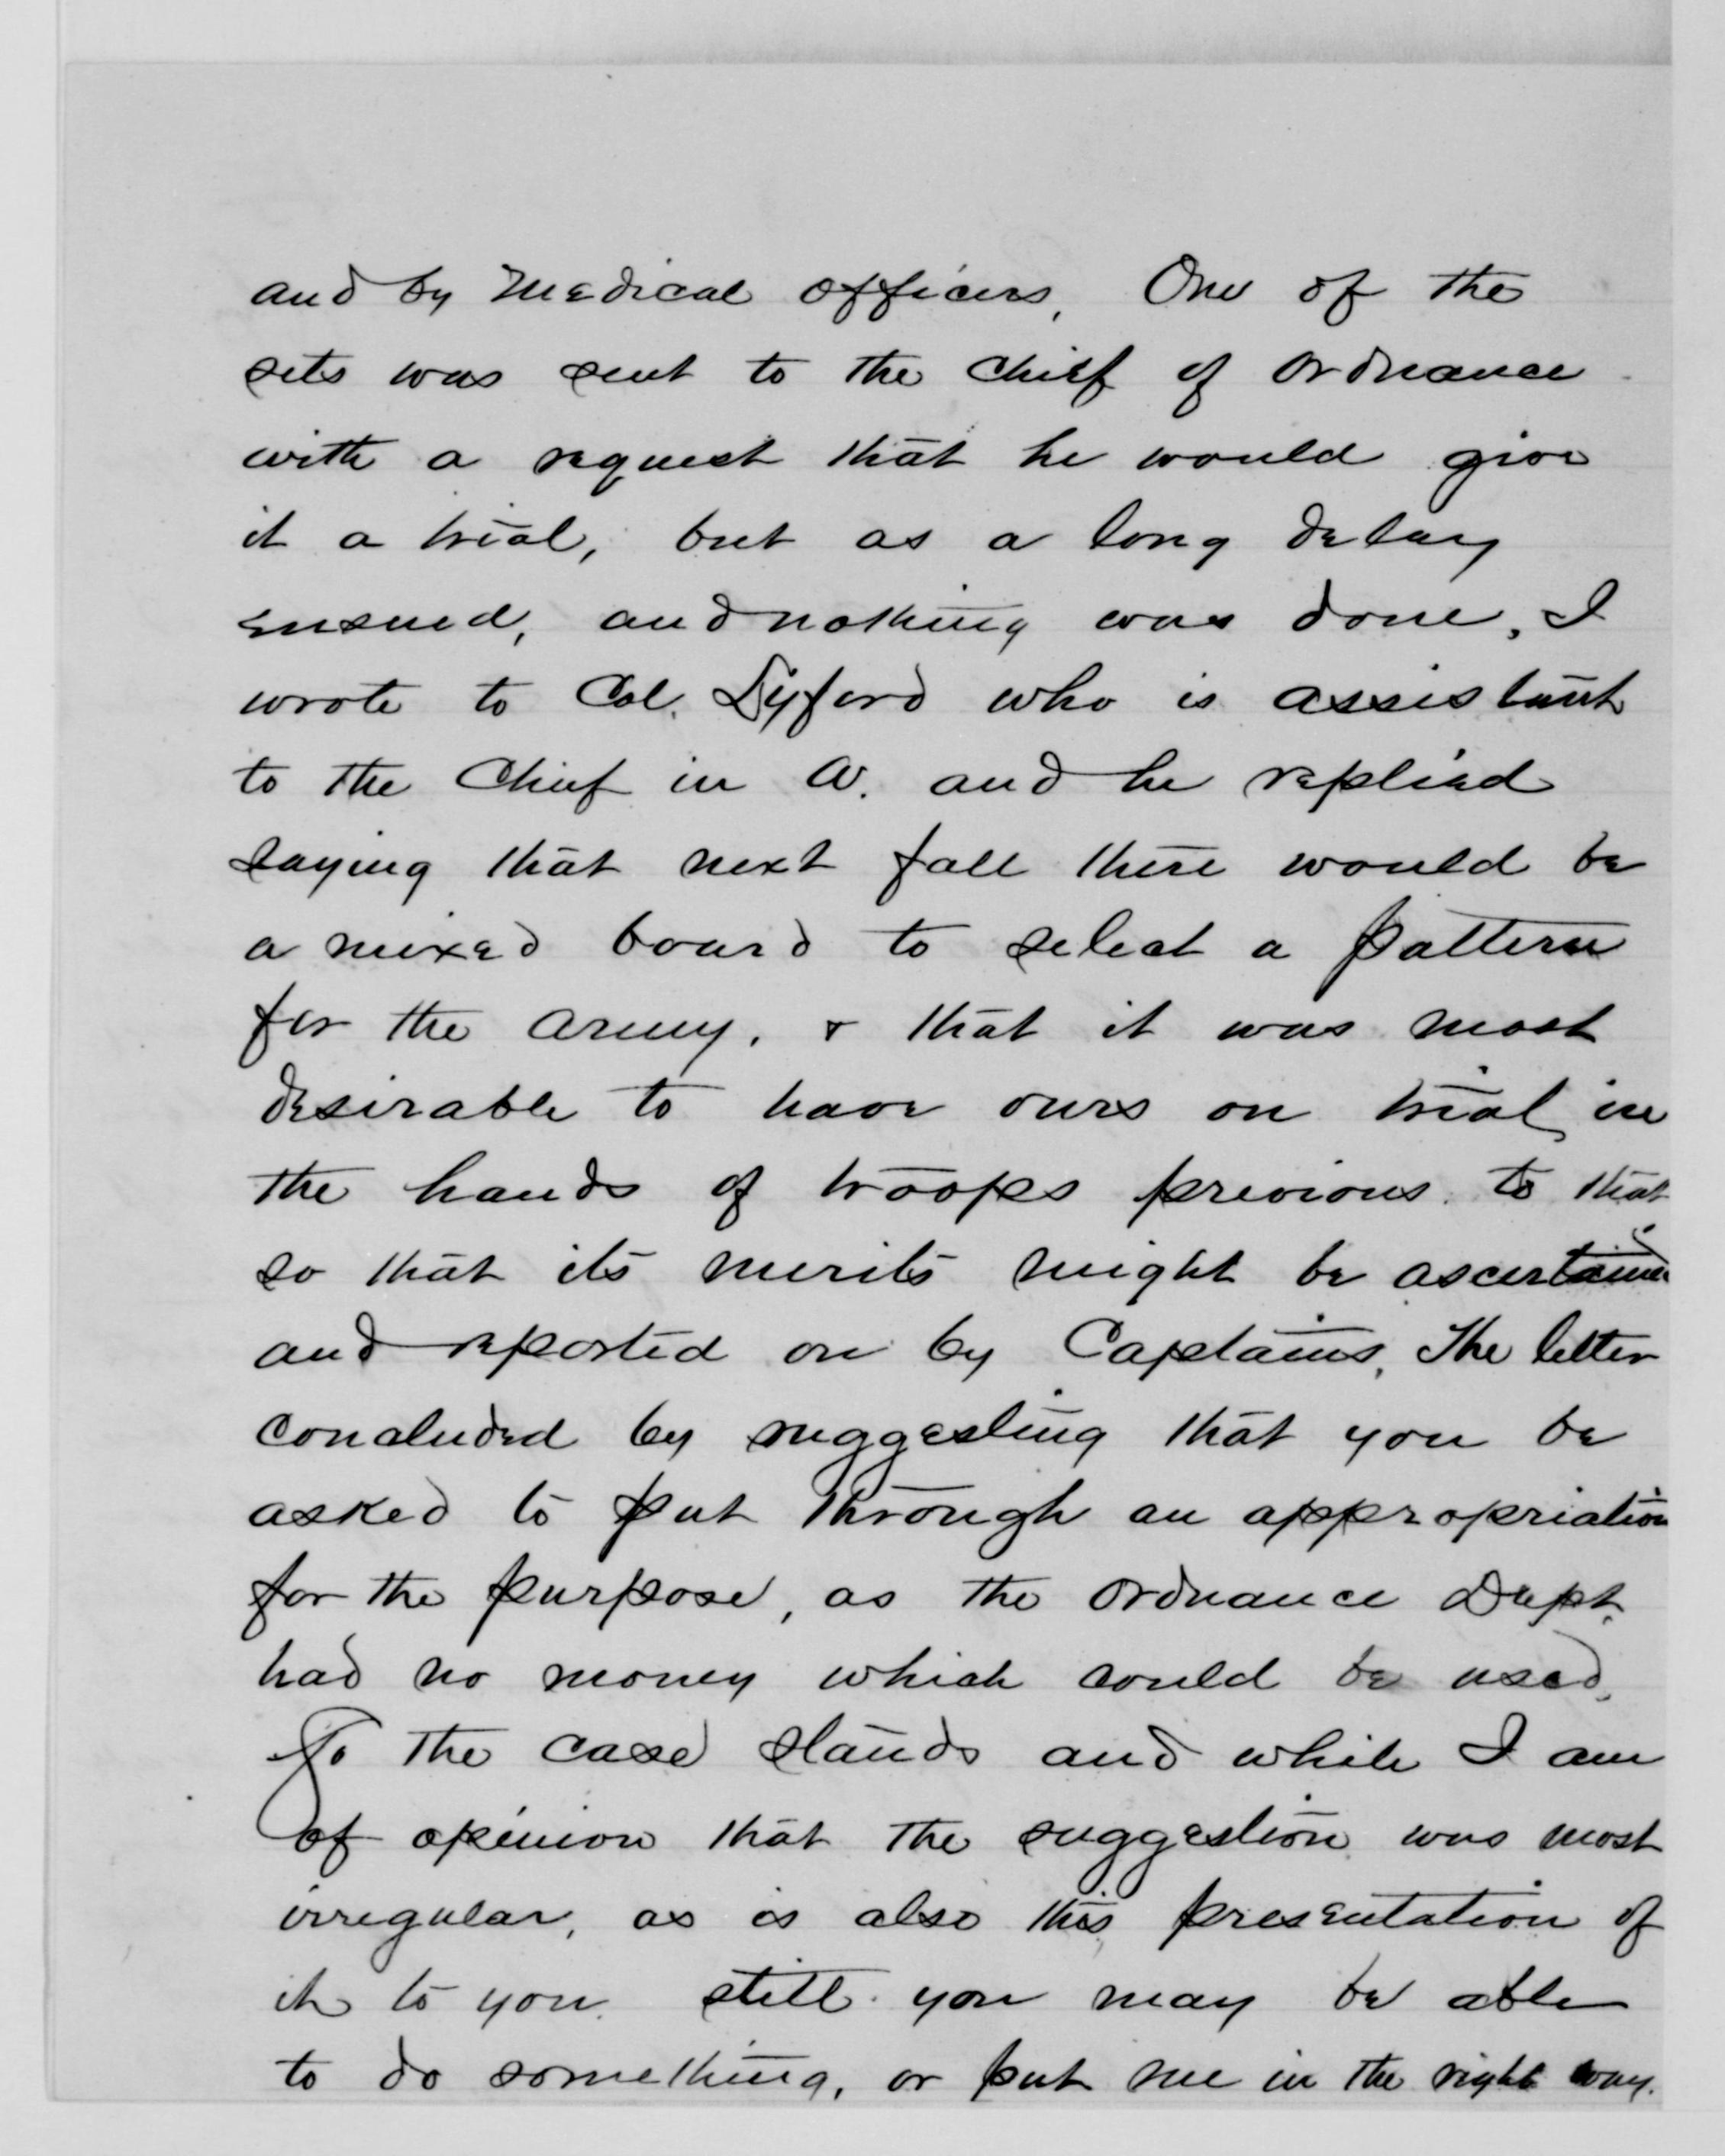 and by medical officers. One of the
sets was sent to the Chief of Ordnance
with a request that he would give
it a trial, but as a long delay
ensued, and nothing was done, I
wrote to Col. Lyford who is assistant
to the Chief in W. and he replied
saying that next fall there would be
a mixed board to select a pattern
for the Army, & that it was most
desirable to have ours on trial in
the hands of troops previous to that
so that its merits might be ascertained
and reported on by Captains. The letter
concluded by suggesting that you be
asked to put through an appropriation
for the purpose, as the Ordnance Dept.
had no money which could be used.
So the case stands and while I am
of opinion that the suggestion was most
irregular, as is also this presentation of
it to you. still you may be able
to do something, or put me in the right way.